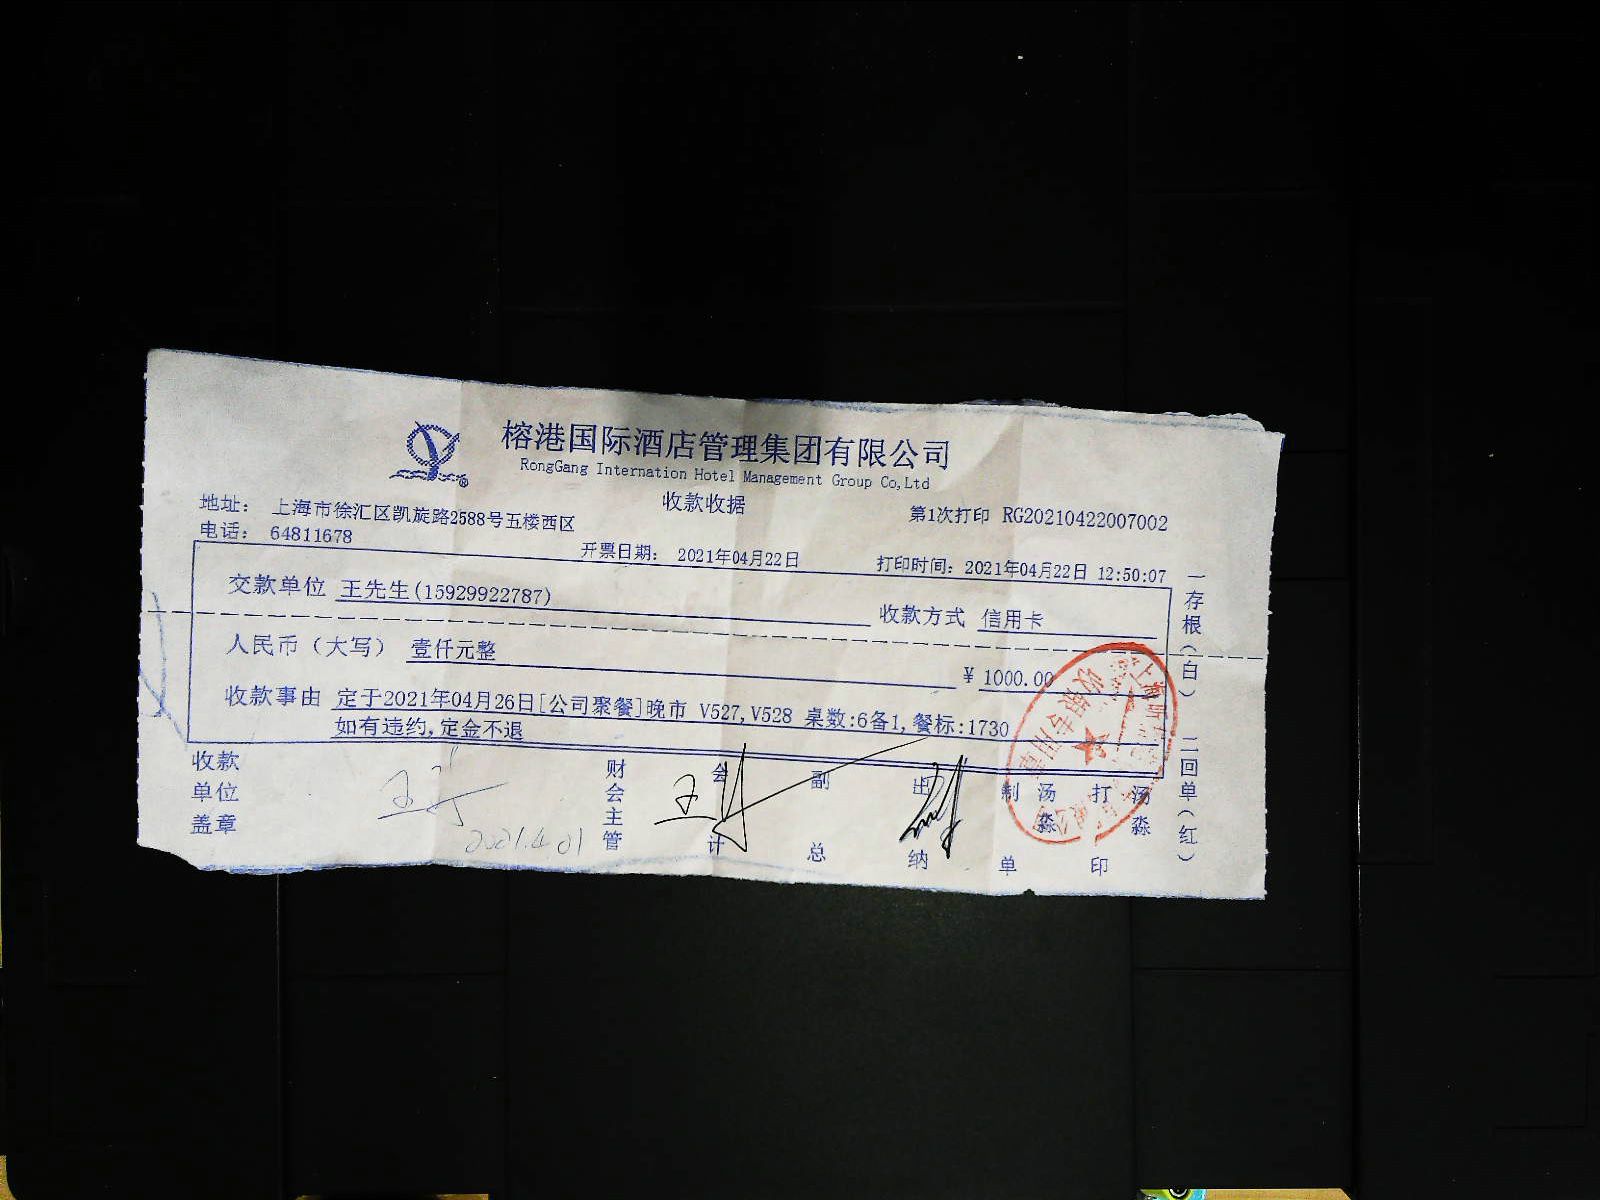 榕港国际酒店管理集团有限公司
RongGang Internation Hotel Management Group Co,Ltd
收款收据
地址： 上海市徐汇区凯旋路2588号五楼西区
第1次打印 RG20210422007002
电话： 64811678
开票日期： 2021年04月22日
打印时间：2021年04月22日 12:50:07
交款单位 王先生(15929922787)
收款方式 信用卡
人民币（大写） 壹仟元整
¥ 1000.00
收款事由 定于2021年04月26日[公司聚餐]晚市 V527,V528 桌数:6备1,餐标:1730
如有违约,定金不退
一存根（白） 二回单（红）
收款单位盖章
财会主管
会计
副总
出纳
制单 汤淼
打印 汤淼
收银专用章